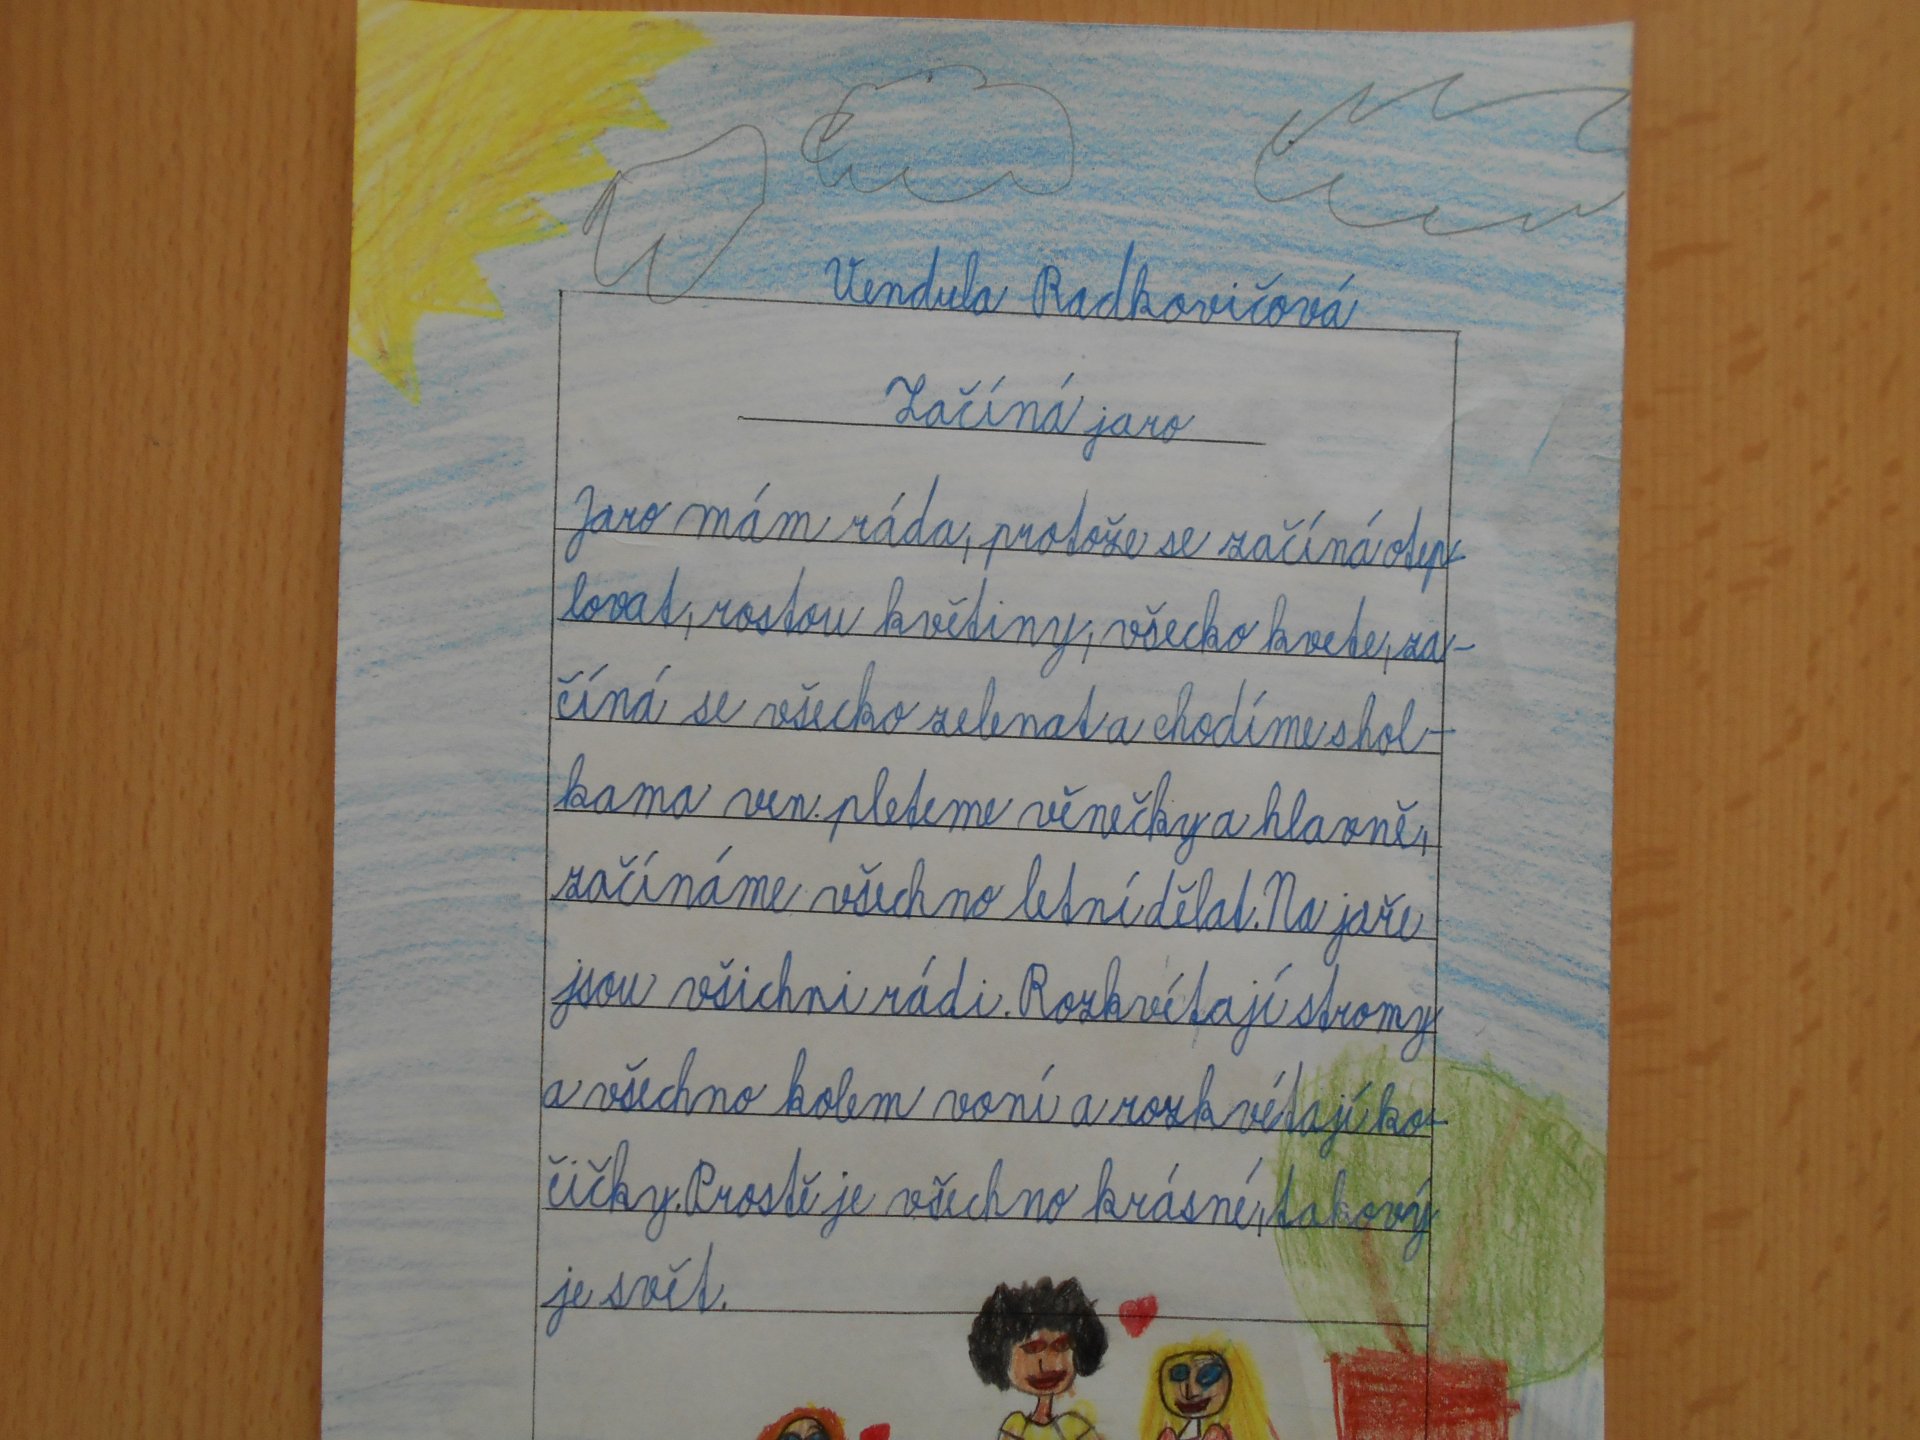 Vendula Radkovičová
Začíná jaro
Jaro mám ráda, protože se začíná otep-
lovat, rostou květiny, všecko kvete, za-
číná se všecko zelenat a chodíme s hol-
kama ven. pleteme věnečky a hlavně,
začínáme všechno letní dělat. Na jaře
jsou všichni rádi. Rozkvétají stromy
a všechno kolem voní a rozkvétají ko-
čičky. Prostě je všechno krásné, takový
je svět.